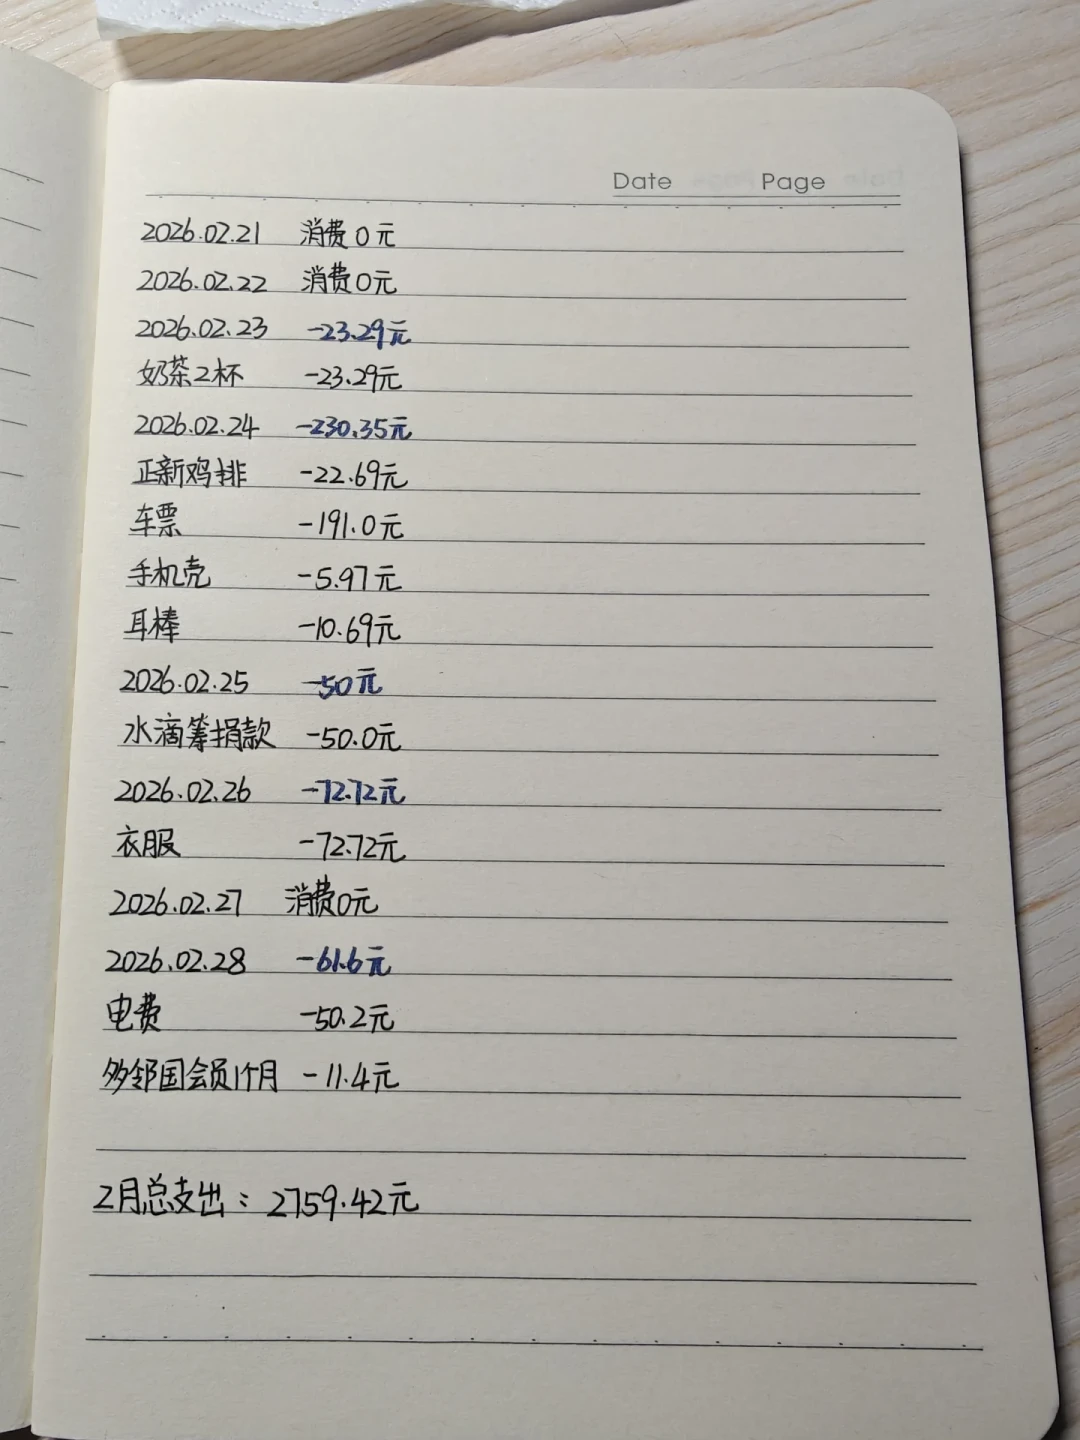 Date Page
2026.02.21 消费0元
2026.02.22 消费0元
2026.02.23 -23.29元
奶茶2杯 -23.29元
2026.02.24 -230.35元
正新鸡排 -22.69元
车票 -191.0元
手机壳 -5.97元
耳棒 -10.69元
2026.02.25 -50元
水滴筹捐款 -50.0元
2026.02.26 -72.72元
衣服 -72.72元
2026.02.27 消费0元
2026.02.28 -61.6元
电费 -50.2元
多邻国会员1个月 -11.4元
2月总支出：2759.42元